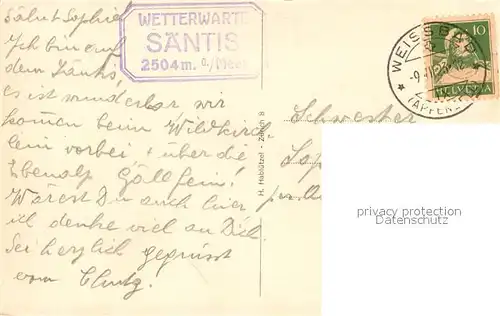 Salut Sophie!
Ich bin auf
dem Säntis,
es ist wunderbar wir
kommen beim Wildkirch
lein vorbei, + über die
Ebenalp
Wärest Du auch hier
ich denke viel an Dich.
Sei herzlich gegrüsst
vom
WETTERWARTE
SÄNTIS
2504 m. ü./Meer
H. Hablützel - Zürich 8
Schwester
WEISSBAD
10
HELVETIA
privacy protection
Datenschutz